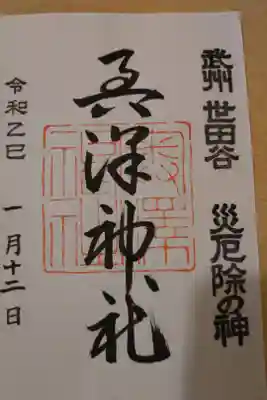 武州 世田谷 災厄除の神
奥澤神社
令和乙巳 一月十二日